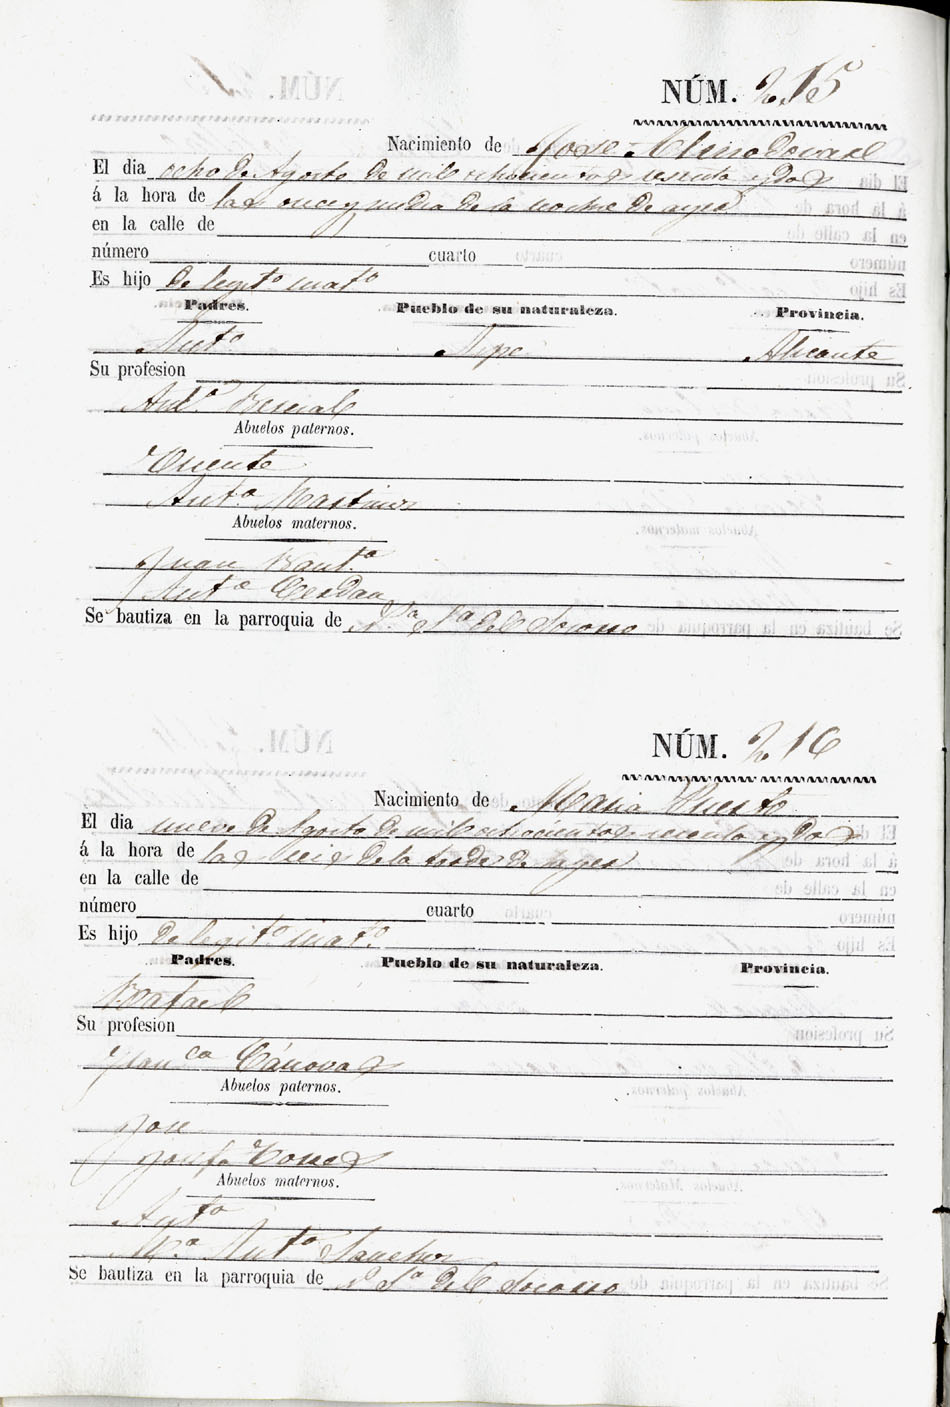 NÚM. 215
Nacimiento de Jose Almodovar
El dia ocho de Agosto de mil ochocientos sesenta y dos
á la hora de las once y media de la noche de ayer
en la calle de
número cuarto
Es hijo de legit.º mat.º
Padres. Pueblo de su naturaleza. Provincia.
Ant.º Aspe Alicante
Su profesion
Ant.ª Berenal
Abuelos paternos.
Vicente
Ant.ª Martinez
Abuelos maternos.
Juan Baut.ª
Ant.ª Cerdan
Se bautiza en la parroquia de N.ª S.ª del Socorro
NÚM. 216
Nacimiento de Maria Puerto
El dia nueve de Agosto de mil ochocientos sesenta y dos
á la hora de las seis de la tarde de ayer
en la calle de
número cuarto
Es hijo de legit.º mat.º
Padres. Pueblo de su naturaleza. Provincia.
Rafael
Su profesion
Fran.ca Cánovas
Abuelos paternos.
Jose
Josefa Torres
Abuelos maternos.
Ant.º
M.ª Ant.ª Sanchez
Se bautiza en la parroquia de N. S.ª del Socorro